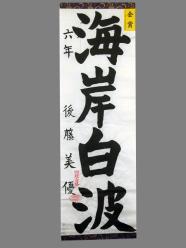 海岸白波
六年 後藤美優
金賞